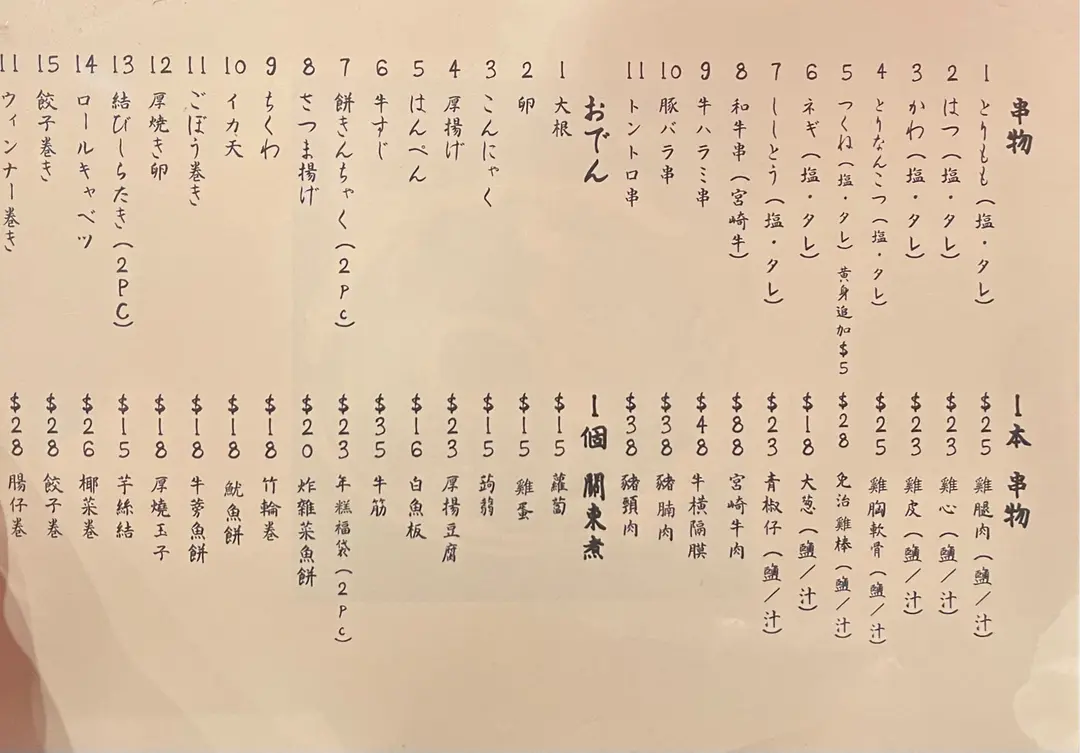 串物 1本 串物
1 とりもも(塩・タレ) $25 雞腿肉(鹽/汁)
2 はつ(塩・タレ) $23 雞心(鹽/汁)
3 かわ(塩・タレ) $23 雞皮(鹽/汁)
4 とりなんこつ(塩・タレ) $25 雞胸軟骨(鹽/汁)
5 つくね(塩・タレ)黄身追加$5 $28 免治雞棒(鹽/汁)
6 ネギ(塩・タレ) $18 大葱(鹽/汁)
7 ししとう(塩・タレ) $23 青椒仔(鹽/汁)
8 和牛串(宮崎牛) $88 宮崎牛肉
9 牛ハラミ串 $48 牛横隔膜
10 豚バラ串 $38 豬腩肉
11 トントロ串 $38 豬頸肉
おでん 1個 關東煮
1 大根 $15 蘿蔔
2 卵 $15 雞蛋
3 こんにゃく $15 蒟蒻
4 厚揚げ $23 厚揚豆腐
5 はんぺん $16 白魚板
6 牛すじ $35 牛筋
7 餅きんちゃく(2pc) $23 年糕福袋(2pc)
8 さつま揚げ $20 炸雑菜魚餅
9 ちくわ $18 竹輪巻
10 イカ天 $18 魷魚餅
11 ごぼう巻き $18 牛蒡魚餅
12 厚焼き卵 $18 厚燒玉子
13 結びしらたき(2PC) $15 芋絲結
14 ロールキャベツ $26 椰菜巻
15 餃子巻き $28 餃子巻
11 ウィンナー巻き $28 腸仔巻